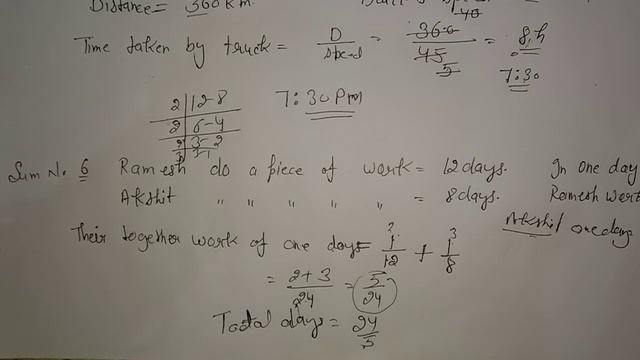 Distance = 360 km.
40
Time taken by truck = D/Speed = 360/45 = 8 h
5
7:30
2 | 12-8
2 | 6-4
2 | 3-2
3 | 3-1
7:30 Pm
Sum No. 6 Ramesh do a piece of work = 12 days. In one day
Akshit " " " " " = 8 days. Ramesh work
Akshit one days
Their together work of one days = 1/12 + 1/8
2 3
= 2+3/24 = 5/24
Tostal days = 24/5